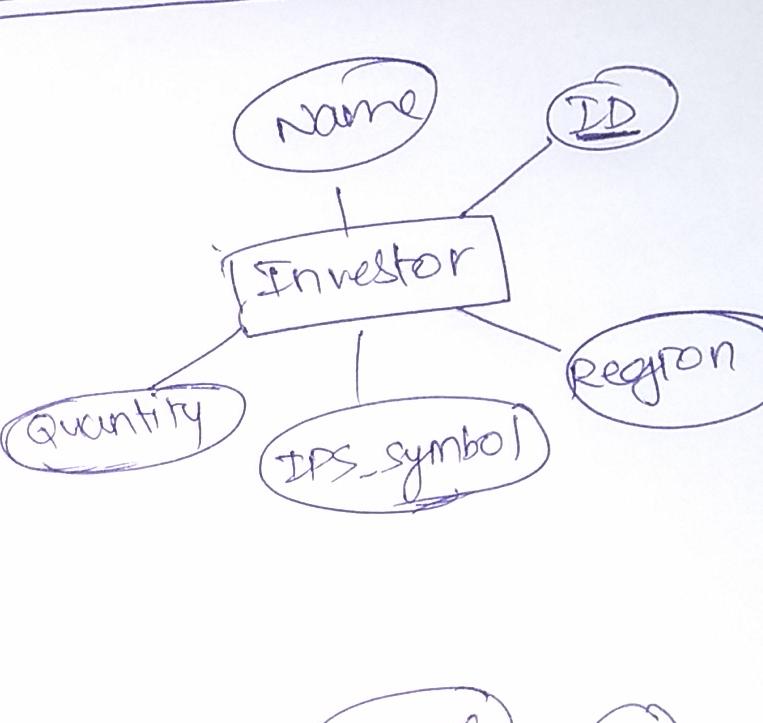 Name
ID
Investor
Region
Quantity
IPS_symbol